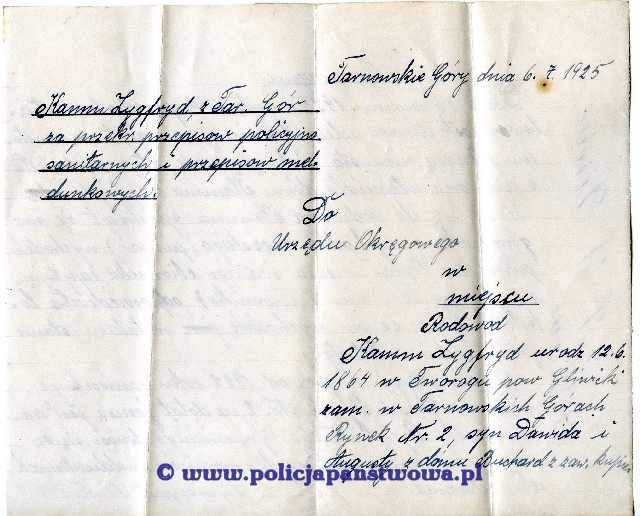 Tarnowskie Góry dnia 6. 7. 1925
Kamm Zygfryd, z Tar. Gór
za przekr. przepisów policyjno
sanitarnych i przepisów mel-
dunkowych.
Do
Urzędu Okręgowego
w
miejscu
Rodowód
Kamm Zygfryd urodz 12.6.
1864 w Tworogu pow Gliwicki
zam. w Tarnowskich Górach
Rynek Nr. 2, syn Dawida i
Augusty z domu Buchard z zaw. kupiec
© www.policjapanstwowa.pl